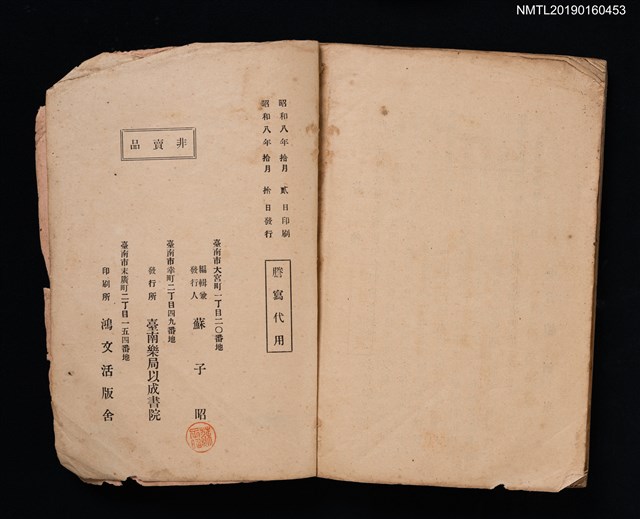 NMTL20190160453
昭和八年拾月貳日印刷
昭和八年拾月拾日發行
謄寫代用
臺南市大宮町一丁目二〇番地
編輯兼發行人 蘇子昭
臺南市幸町二丁目四九番地
發行所 臺南樂局以成書院
臺南市末廣町二丁目一五四番地
印刷所 鴻文活版舍
非賣品